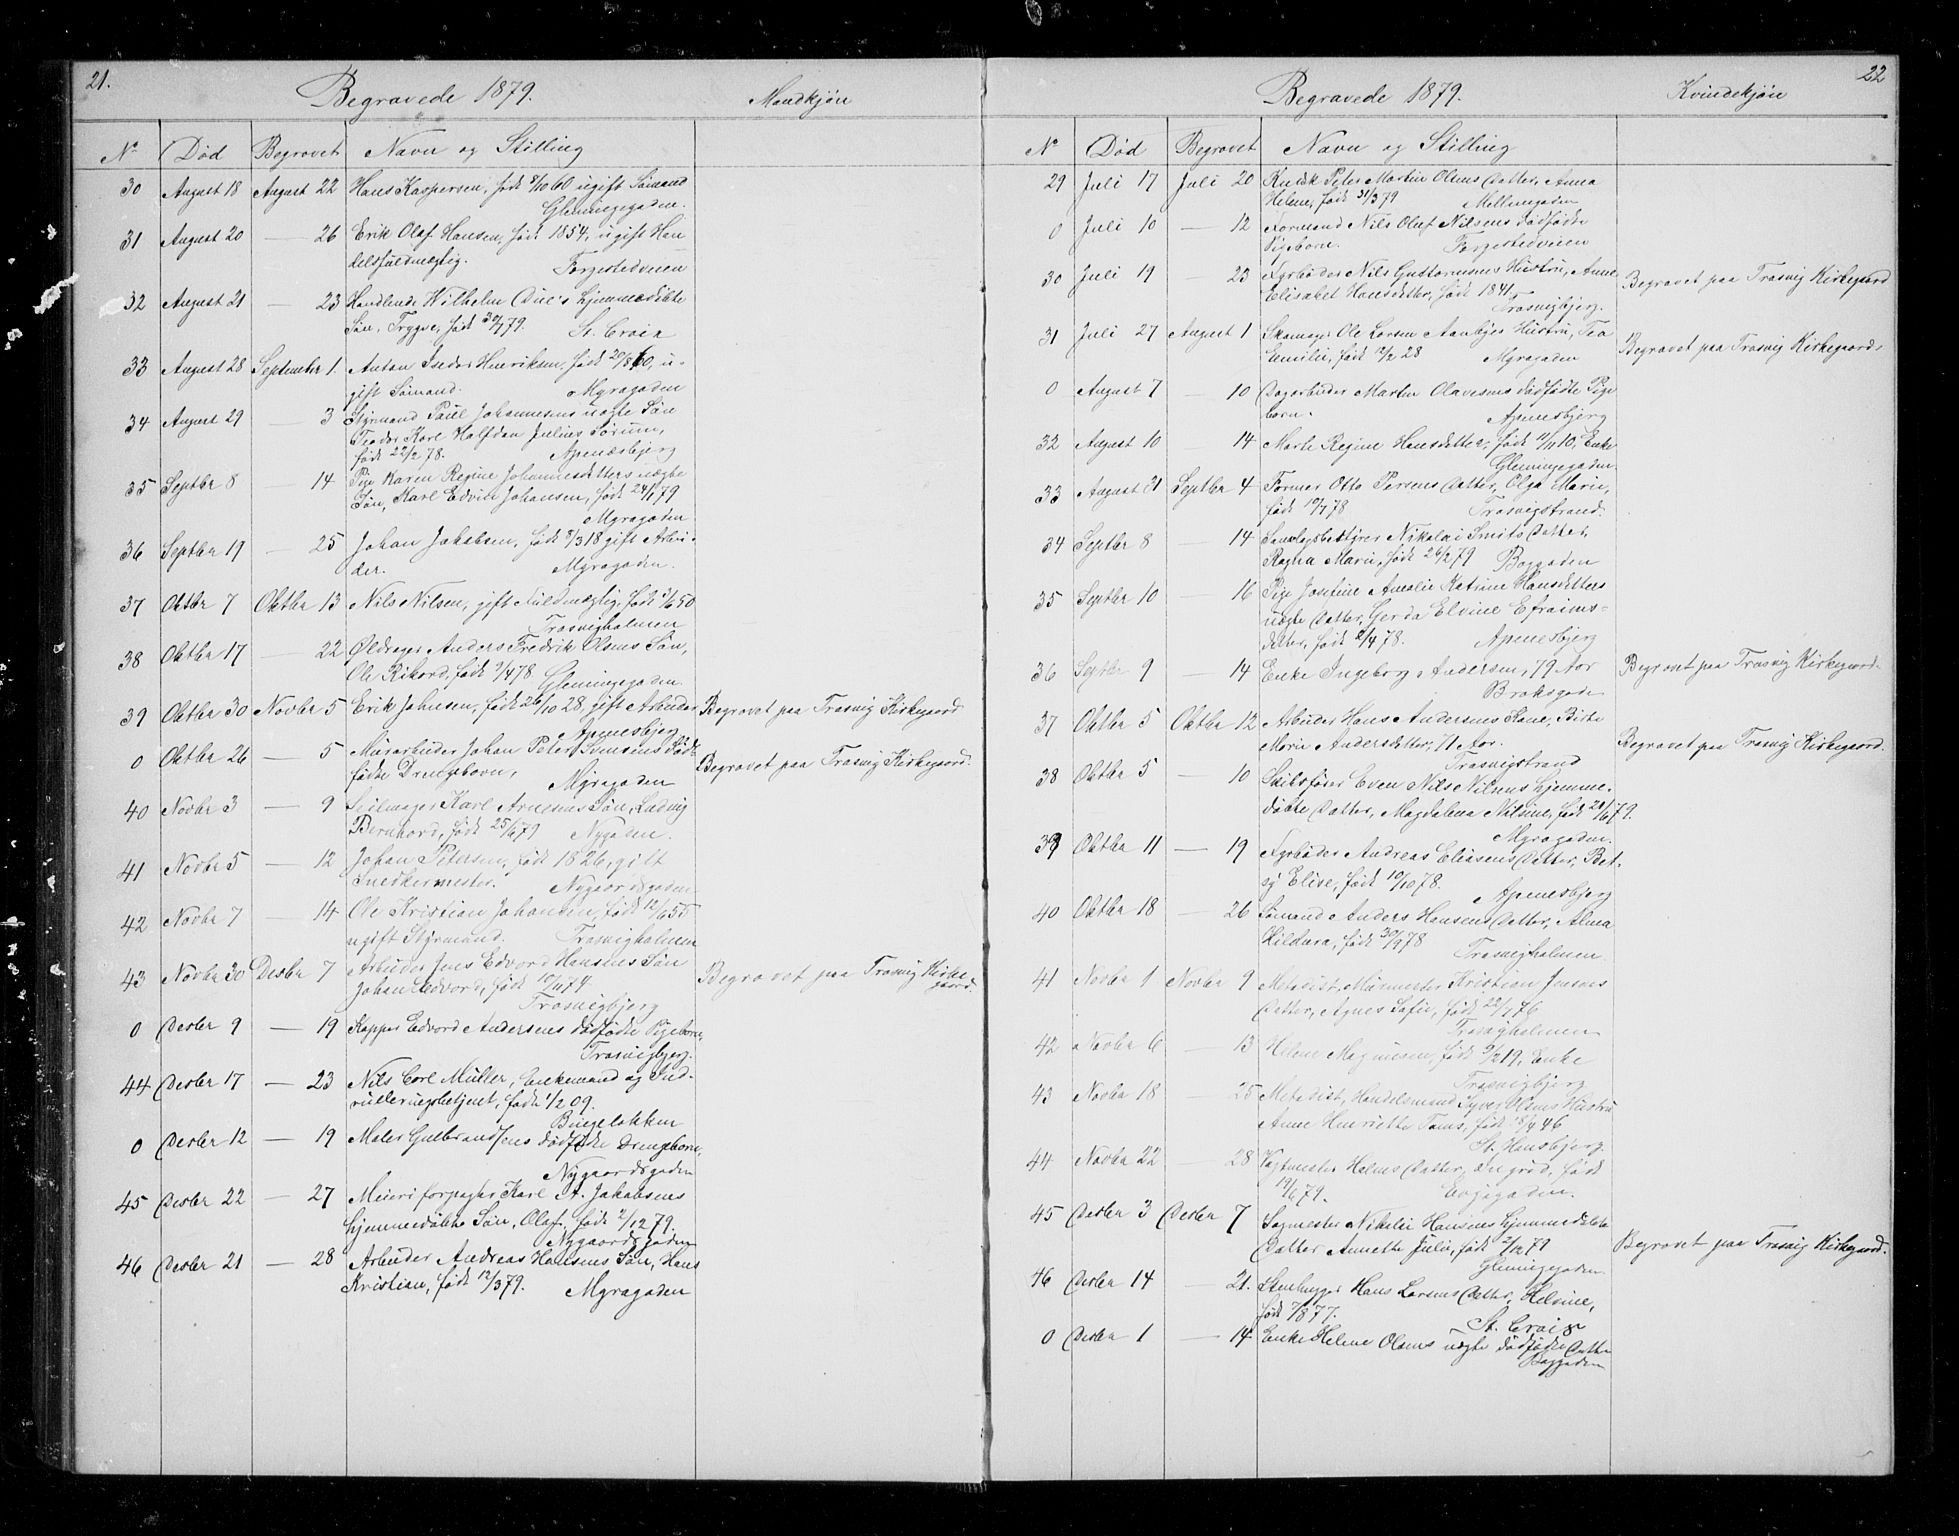 21.
Begravede 1879. Mandkjøn
No Død Begravet Navn og Stilling
30 August 18 August 22 Hans Kaspersen, født 8/10 60 ugift Sømand
Glemmegaden.
31 August 20 — 26 Erik Olaf Hansen, født 1854, ugift Han-
delsfuldmægtig. Torgestedveien
32 August 21 — 23 Handlende Wilhelm Due's hjemmedøbte
Søn, Trygve, født 30/7 79. St. Croix
33 August 28 September 1. Anton Indor Henriksen, født 20/8 60, u-
gift Sømand. Myragaden
34 August 29 — 3 Styrmand Paul Johannesens uægte Søn
Teodor Karl Halfdan Julius Sørum,
født 22/2 78. Apenæsbjerg
35 Septbr 8 — 14 Pige Karen Regine Johannesdatters uægte
Søn, Karl Edvin Johansen, født 24/1 79
Myragaden
36 Septbr 19 — 25 Johan Jakobsen, født 8/3 18 gift Arbei-
der. Myragaden.
37 Oktbr 7 Oktbr 13 Nils Nilsen, gift Fuldmægtig, født 3/6 50
Trosvigholmen
38 Oktbr 17 — 22 Anders Fredrik Olsens Søn,
Ole Rikard, født 9/4 78. Glemmegaden.
39 Oktbr 30 Novbr 5 Erik Johnsen, født 26/10 28, gift Arbeider Begravet paa Trosvig Kirkegaard
Apenesbjerg
0 Oktbr 26 — 5 Murarbeider Johan Peter Svensens død-
fødte Drengebarn, Myragaden Begravet paa Trosvig Kirkegaard.
40 Novbr 3 — 9 Seilmager Karl Arnesens Søn, Ludvig
Bernhard, født 25/6 79 Nygaden.
41 Novbr 5 — 12 Johan Petersen, født 1826, gift
Snedkermester. Nygaardsgaden
42 Novbr 7 — 14 Ole Kristian Johansen, født 12/6 55
ugift Styrmand. Trosvigholmen
43 Novbr 30 Desbr 7 Arbeider Jens Edvard Hansens Søn Begravet paa Trosvig Kirke-
gaard.
Johan Edvard, født 10/11 74
Trosvigbjerg
0 Desbr 9 — 19 Kopper Edvard Andersens dødfødte Pigebarn,
Trosvigbjerg.
44 Desbr 17 — 23 Nils Carl Müller, Enkemand og Ind-
rulleringsbetjent, født 1/2 09.
Bingeløkken
0 Desbr 12 — 19 Maler Gulbrandsens dødfødte Drengebarn,
Nygaardsgaden
45 Desbr 22 — 27 Meieriforpagter Karl A. Jakobsens
hjemmedøbte Søn, Olaf, født 2/12 79.
Nygaardsgaden
46 Desbr 21 — 28 Arbeider Andreas Hansens Søn, Hans
Kristian, født 12/3 79. Myragaden
22
Begravede 1879. Kvindekjøn
No Død Begravet Navn og Stilling
29 Juli 17 Juli 20 Kudsk Peter Martin Olsens Datter, Anna
Helene, født 31/3 79 Mellemgaden
0 Juli 10 — 12 Formand Nils Oluf Nilsens dødfødte
Pigebarn. Torgestedveien
30 Juli 19 — 23 Fyrbøder Nils Gustavnsens Hustru, Anne
Elisabet Hansdatter, født 1841. Begravet paa Trosvig Kirkegaard
Trosvigbjerg.
31 Juli 27 August 1 Skomager Ole Larsen Aanbyes Hustru, Tea
Emilie, født 12/2 28 Myragaden Begravet paa Trosvig Kirkegaard.
0 August 7 — 10 Dagarbeider Martin Olavesens dødfødte Pige
barn. Apenesbjerg
32 August 10 — 14 Marte Regine Hansdatter, født 11/11 10, Enke
Glemmegaden.
33 August 31 Septbr 4 Former Otto Persens Datter, Olga Marie,
født 19/7 78 Trosvigstrand.
34 Septbr 8 — 14 Nikolai Smits Datter,
Ragna Marie, født 26/2 79 Baggaden
35 Septbr 10 — 16 Pige Josefine Amalie Katrine Hansdatters
uægte Datter, Gerda Elvine Efraims-
datter, født 2/4 78. Apenesbjerg
36 Septbr 9 — 14 Enke Ingeborg Andersen, 79 Aar Begravet paa Trosvig Kirkegaard.
Broksgade
37 Oktbr 5 Oktbr 12 Arbeider Hans Andersens Kone, Birte
Marie Andersdatter, 71 Aar. Begravet paa Trosvig Kirkegaard.
Trosvigstrand
38 Oktbr 5 — 10 Skibsfører Even Nils Nilsens hjemme-
døbte Datter, Magdalena Nilsine, født 28/6 79.
Myragaden.
39 Oktbr 11 — 19 Fyrbøder Andreas Eliasens Datter, Bet-
sy Elise, født 10/10 78.
Apenesbjerg
40 Oktbr 18 — 26 Sømand Anders Hansens Datter, Alma
Hildura, født 30/9 78
Trosvigholmen
41 Novbr 1 Novbr 9 Metodist, Murmester Kristian Jensens
Datter, Agnes Sofie, født 22/7 76
Trosvigholmen
42 Novbr 6 — 13 Helene Magnusen, født 9/2 19, Enke
Trosvigbjerg
43 Novbr 18 — 25 Metodist, Handelsmand Syver Olsens Hustru
Anne Henriette Tams, født 18/4 46
St. Hansbjerg.
44 Novbr 22 — 28 Vagtmester Holms Datter, Ingrid, født
19/6 79. Evjegaden.
45 Desbr 3 Desbr 7 Sagmester Nikolai Hansens hjemmedøbte
Datter Annette Julie, født 2/12 79 Begravet paa Trosvig Kirkegaard.
Glemmegaden.
46 Desbr 14 — 21. Stenhugger Hans Larsens Datter, Helvine,
født 7/8 77.
St. Croix
0 Desbr 1 — 14 Enke Helene Olsens uægte dødfødte Datter
Baggaden